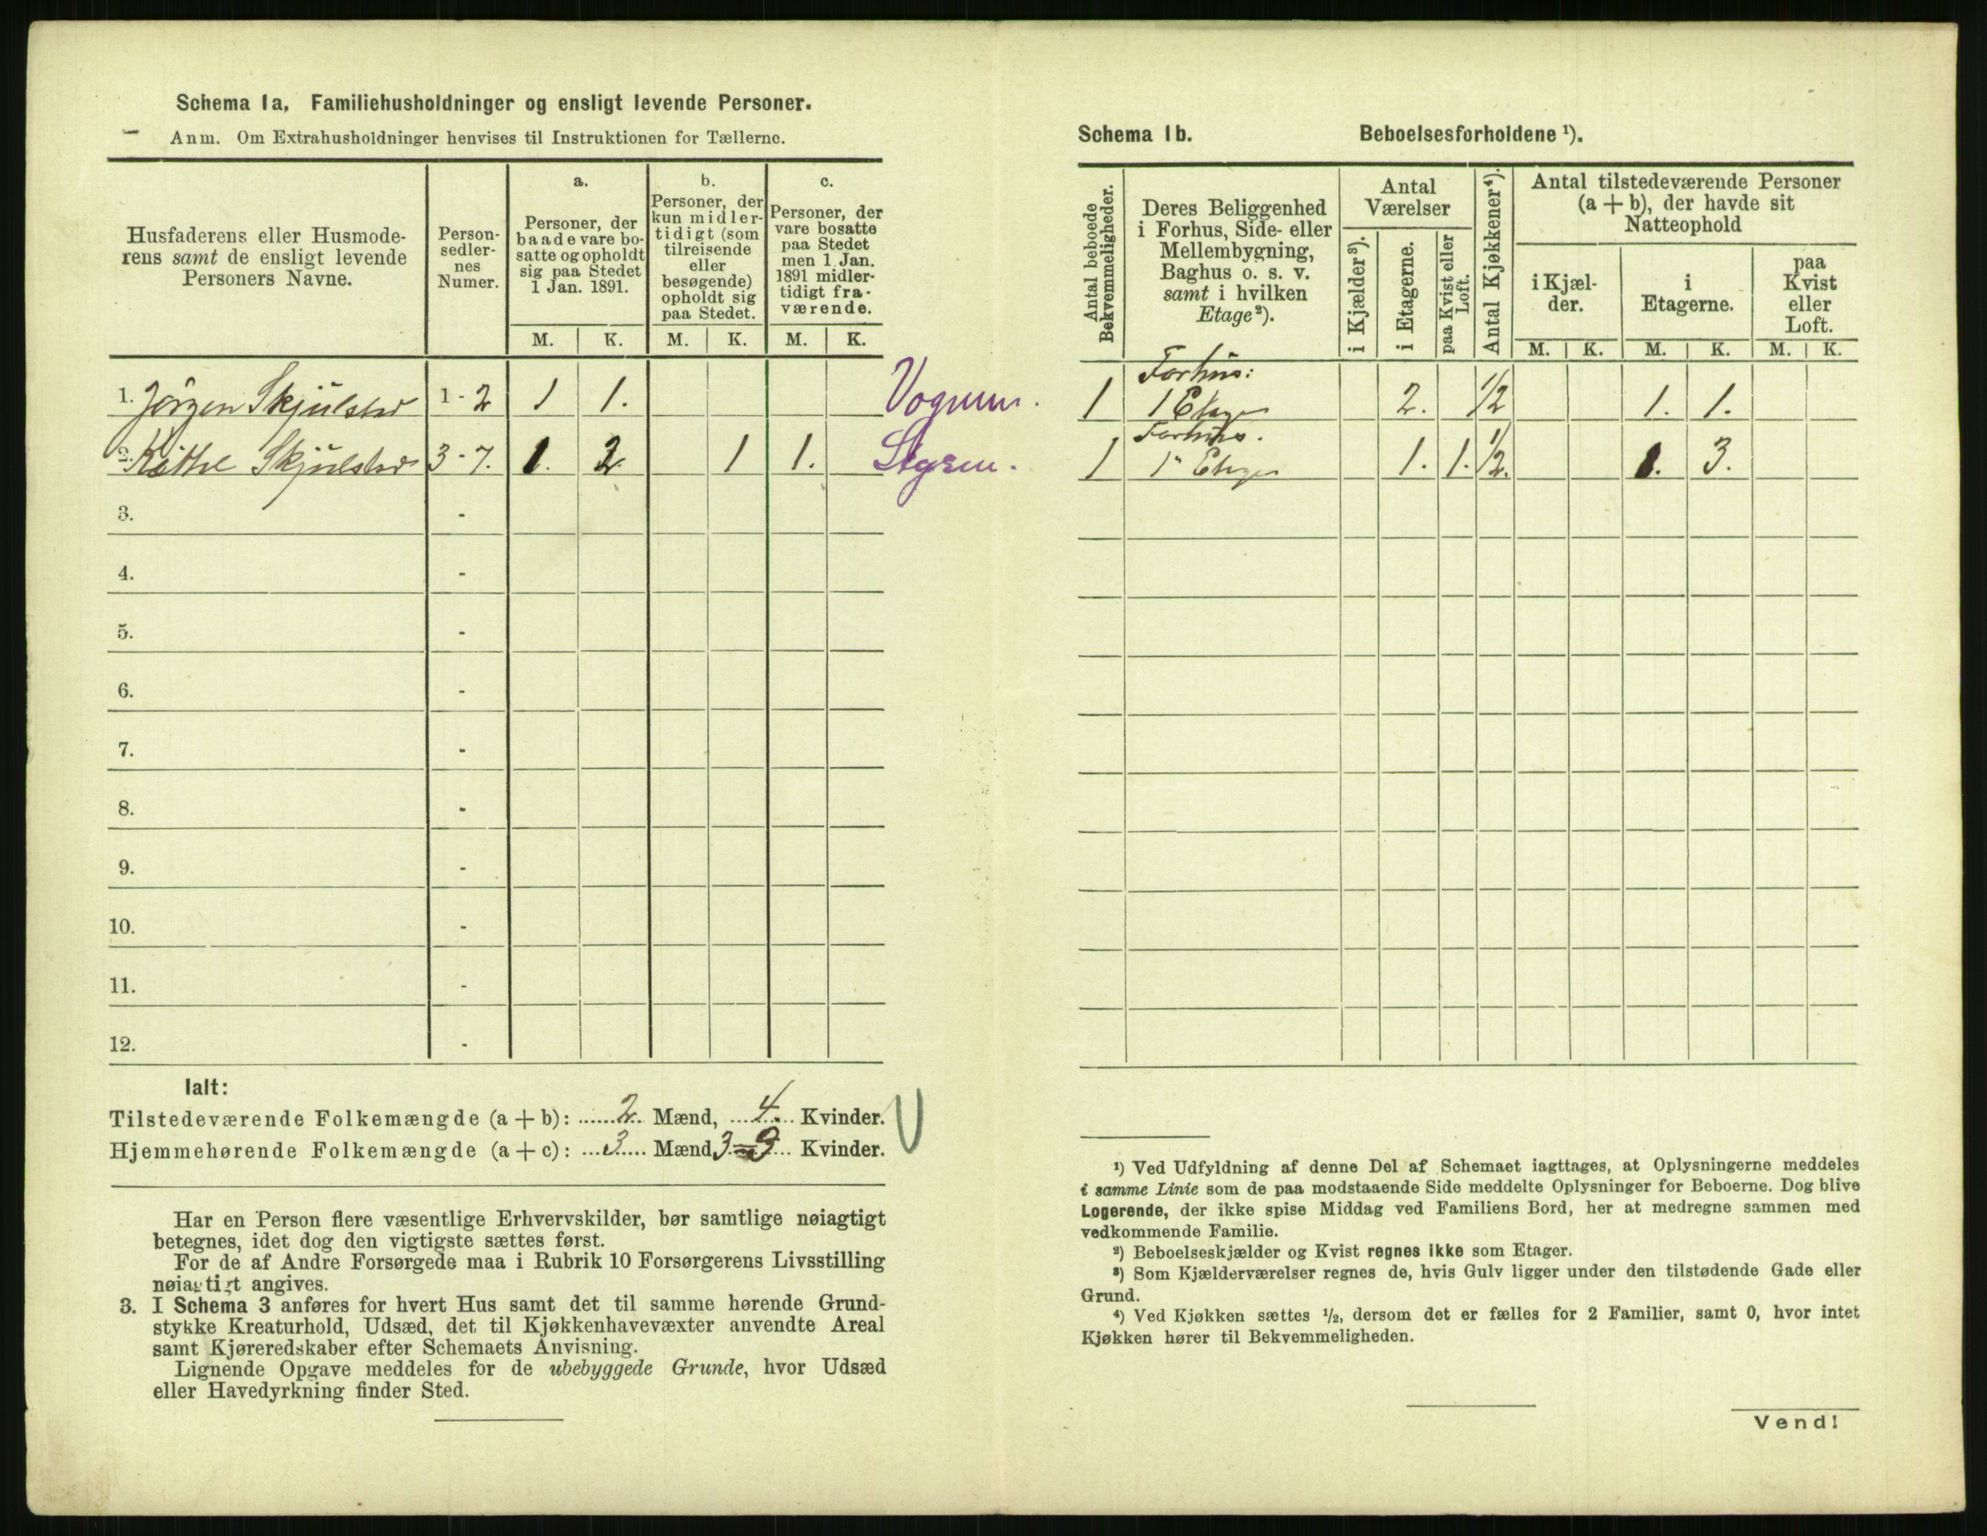 Schema 1a, Familiehusholdninger og ensligt levende Personer.
Anm. Om Extrahusholdninger henvises til Instruktionen for Tællerne.
Husfaderens eller Husmode-
rens samt de ensligt levende
Personers Navne.
Person-
sedler-
nes
Numer.
a.
Personer, der
baade vare bo-
satte og opholdt
sig paa Stedet
1 Jan. 1891.
b.
Personer, der
kun midler-
tidigt (som
tilreisende
eller
besøgende)
opholdt sig
paa Stedet.
c.
Personer, der
vare bosatte
paa Stedet
men 1 Jan.
1891 midler-
tidigt fra-
værende.
M. K. M. K. M. K.
1. Jörgen Skjulstad 1 - 2 1 1.
2. Käthe Skjulstad 3 - 7. 1. 2 1 1.
3. -
4. -
5. -
6. -
7. -
8. -
9. -
10. -
11. -
12. -
Ialt:
Tilstedeværende Folkemængde (a + b): 2 Mænd, 4. Kvinder.
Hjemmehørende Folkemængde (a + c): 3 Mænd 3 = 3 Kvinder.
Har en Person flere væsentlige Erhvervskilder, bør samtlige nøiagtigt
betegnes, idet dog den vigtigste sættes først.
For de af Andre Forsørgede maa i Rubrik 10 Forsørgerens Livsstilling
nøiagtigt angives.
3. I Schema 3 anføres for hvert Hus samt det til samme hørende Grund-
stykke Kreaturhold, Udsæd, det til Kjøkkenhavevæxter anvendte Areal
samt Kjøreredskaber efter Schemaets Anvisning.
Lignende Opgave meddeles for de ubebyggede Grunde, hvor Udsæd
eller Havedyrkning finder Sted.
Schema 1b. Beboelsesforholdene ¹).
Antal beboede
Bekvemmeligheder.
Deres Beliggenhed
i Forhus, Side- eller
Mellembygning,
Baghus o. s. v.
samt i hvilken
Etage²).
Antal
Værelser
i Kjælder³).
i Etagerne.
paa Kvist eller
Loft.
Antal Kjøkkener⁴).
Antal tilstedeværende Personer
(a + b), der havde sit
Natteophold
i Kjæl-
der.
i
Etagerne.
paa
Kvist
eller
Loft.
M. K. M. K. M. K.
Forhus:
1 1 Etage 2. 1/2 1. 1.
Forhus.
1 1" Etage 1. 1. 1/2. 1. 3.
¹) Ved Udfyldning af denne Del af Schemaet iagttages, at Oplysningerne meddeles
i samme Linie som de paa modstaaende Side meddelte Oplysninger for Beboerne. Dog blive
Logerende, der ikke spise Middag ved Familiens Bord, her at medregne sammen med
vedkommende Familie.
²) Beboelseskjælder og Kvist regnes ikke som Etager.
³) Som Kjælderværelser regnes de, hvis Gulv ligger under den tilstødende Gade eller
Grund.
⁴) Ved Kjøkken sættes ½, dersom det er fælles for 2 Familier, samt 0, hvor intet
Kjøkken hører til Bekvemmeligheden.
Vend!